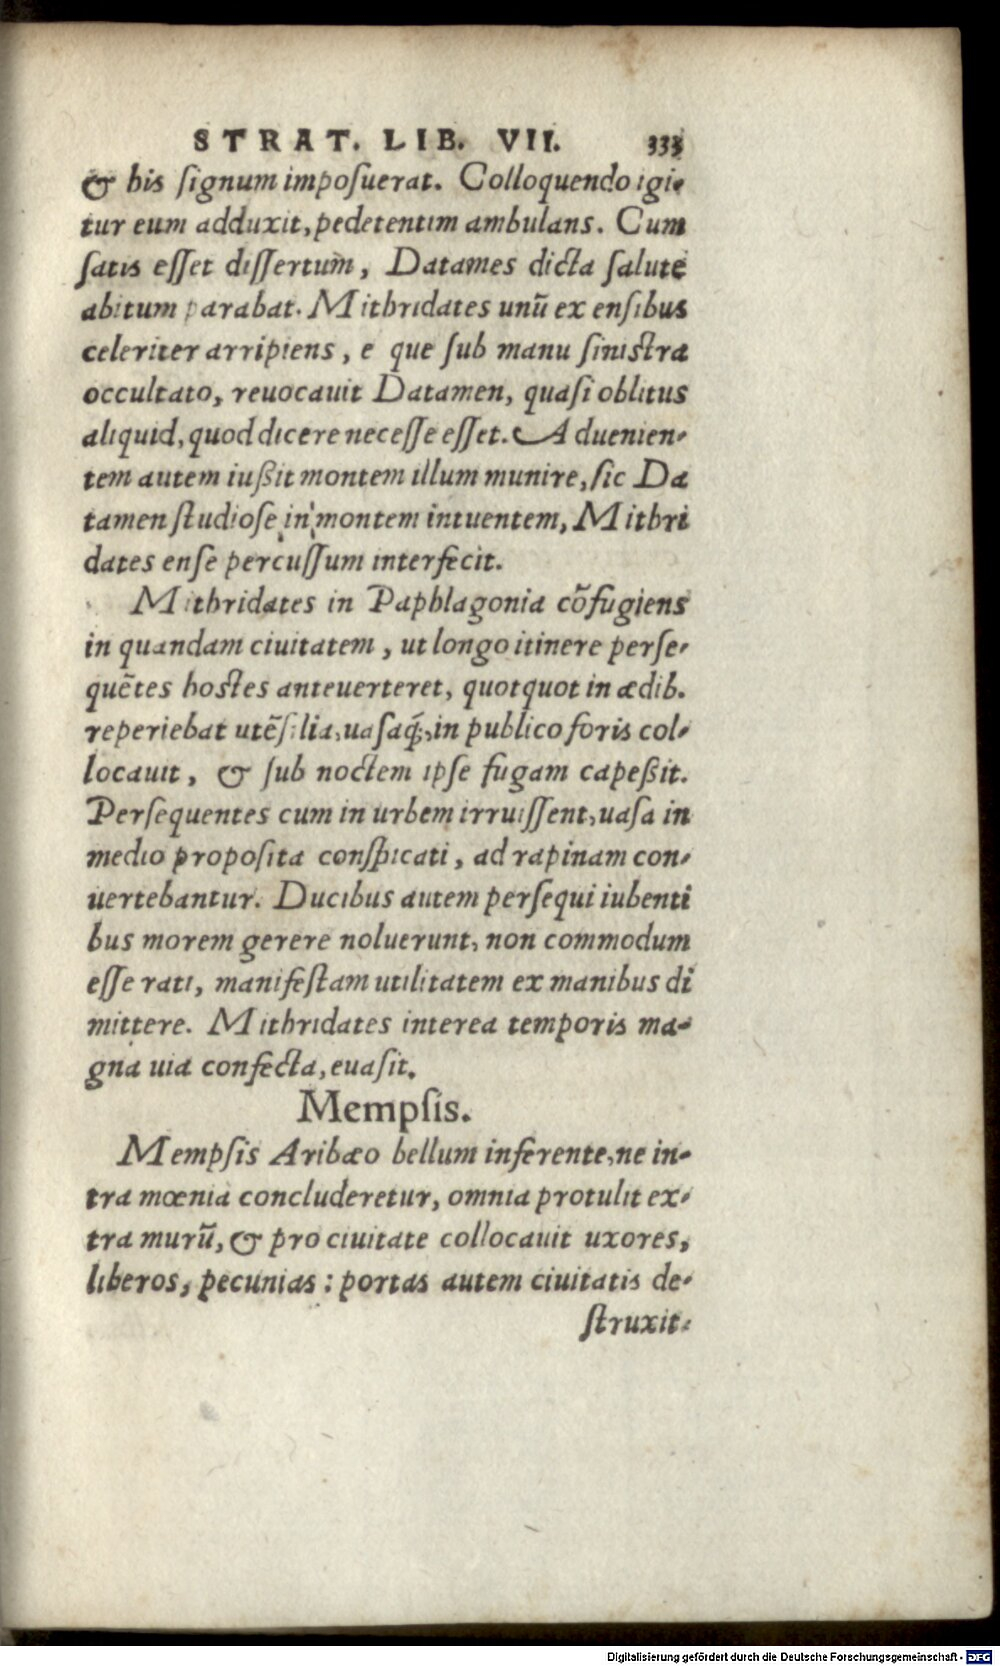 STRAT. LIB. VII. 333
& his ſignum impoſuerat. Colloquendo igi-
tur eum adduxit, pedetentim ambulans. Cum
ſatis eſſet diſſertum, Datames dicta ſalute
abitum parabat. Mithridates unũ ex enſibus
celeriter arripiens, e que ſub manu ſiniſtra
occultato, reuocauit Datamen, quaſi oblitus
aliquid, quod dicere neceſſe eſſet. Aduenien-
tem autem iußit montem illum munire, ſic Da
tamen ſtudioſe in montem intuentem, Mithri
dates enſe percuſſum interfecit.
Mithridates in Paphlagonia cõfugiens
in quandam ciuitatem, ut longo itinere perſe-
quẽtes hostes anteuerteret, quotquot in ædib.
reperiebat utẽſilia, uaſaq́;, in publico foris col-
locauit, & ſub noctem ipſe fugam capeßit.
Perſequentes cum in urbem irruiſſent, uaſa in
medio propoſita conſpicati, ad rapinam con-
uertebantur. Ducibus autem perſequi iubenti
bus morem gerere noluerunt, non commodum
eſſe rati, manifeſtam utilitatem ex manibus di
mittere. Mithridates interea temporis ma-
gna uia confecta, euaſit.
Mempſis.
Mempſis Aribæo bellum inferente, ne in-
tra mœnia concluderetur, omnia protulit ex-
tra murũ, & pro ciuitate collocauit uxores,
liberos, pecunias: portas autem ciuitatis de-
ſtruxit:
Digitalisierung gefördert durch die Deutsche Forschungsgemeinschaft - DFG